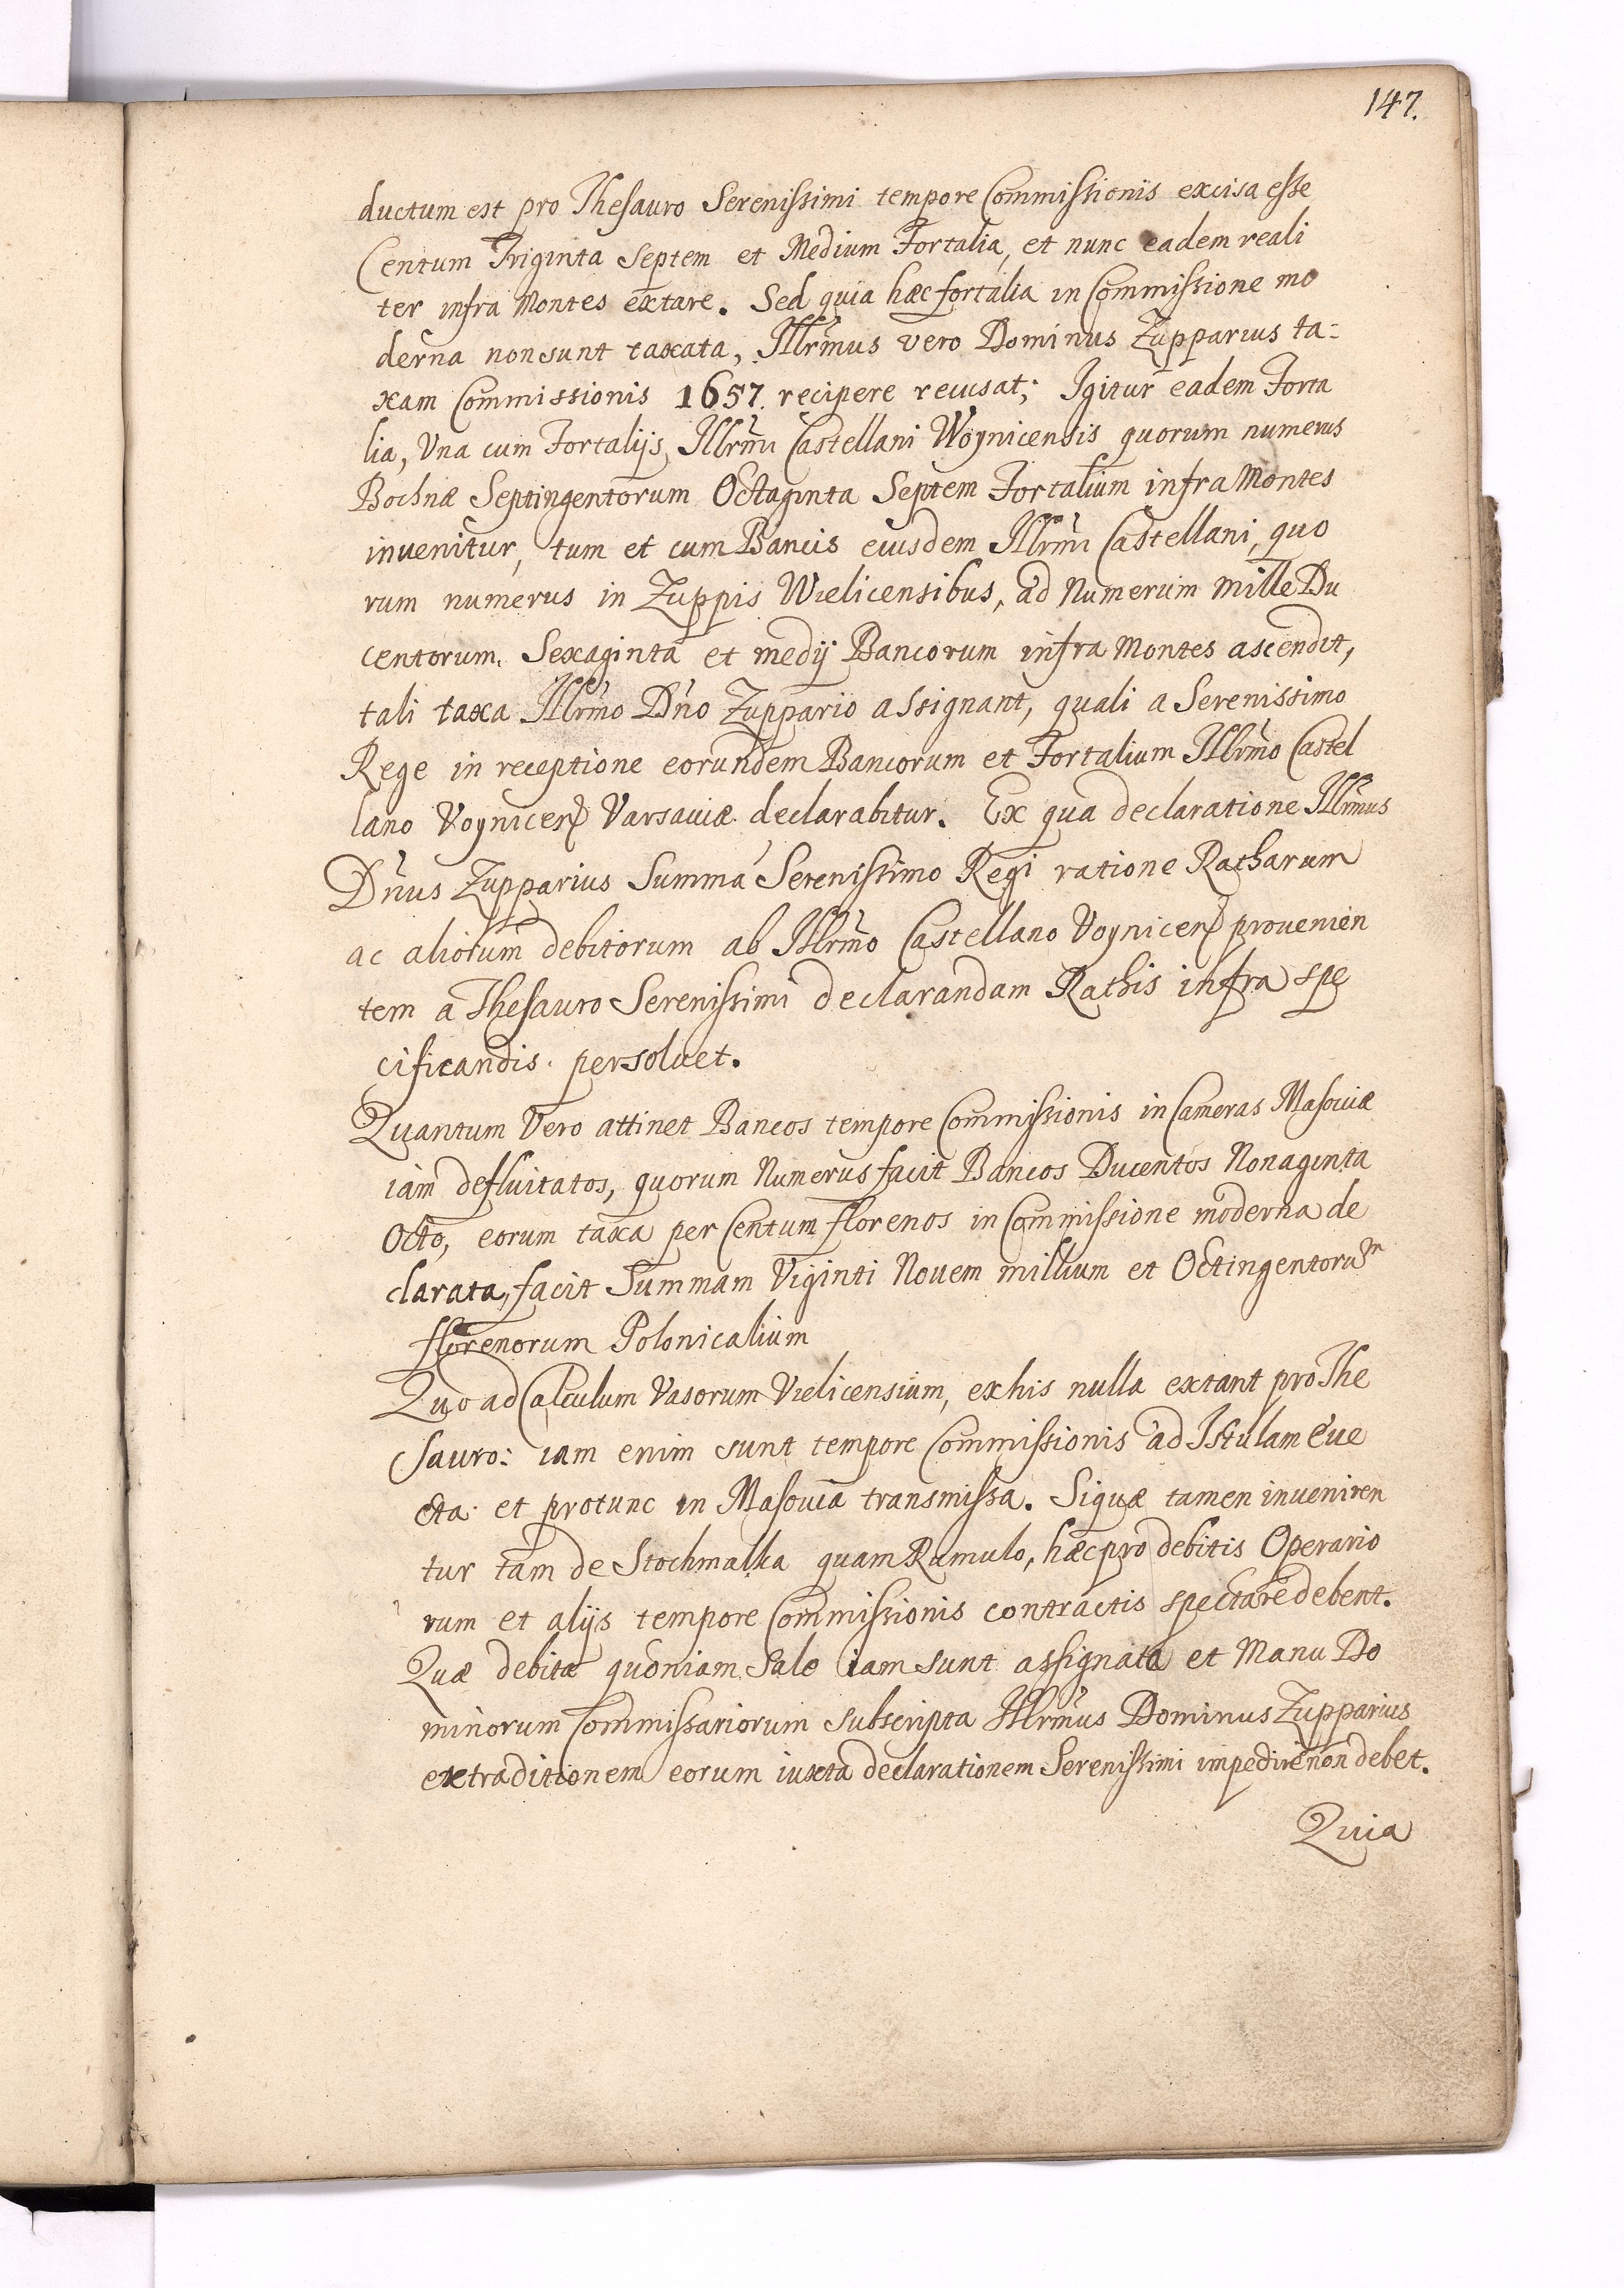 147.
ductum est pro Thesauro Serenissimi tempore Commissionis excisa esse
Centum Triginta Septem et Medium Fortalia, et nunc eadem reali
ter infra Montes extare. Sed quia hæc fortalia in Commissione mo
derna non sunt taxata, Illrmus vero Dominus Zupparius ta:
xam Commissionis 1657. recipere recusat; Igitur eadem Forta
lia, Una cum Fortalijs Illrmi Castellani Woynicensis quorum numerus
Bochnæ Septingentorum Octaginta Septem Fortalium infra Montes
inuenitur, tum et cum Bancis eiusdem Illrmi Castellani, quo
rum numerus in Zuppis Wielicensibus, ad Numerum Mille Du
centorum. Sexaginta et medij Bancorum infra Montes ascendit,
tali taxa Illrmo Dno Zuppario assignant, quali a Serenissimo
Rege in receptione eorundem Bancorum et Fortalium Illrmo Castel
lano Voynicen Varsauiæ declarabitur. Ex qua declaratione Illrmus
Dnus Zupparius Summa Serenissimo Regi ratione Ratharum
ac aliorum debitorum ab Illrmo Castellano Voynicen prouenien
tem a Thesauro Serenissimi declarandam Rathis infra spe
cificandis persoluet.
Quantum Vero attinet Bancos tempore Commissionis in Cameras Masouiæ
iam defluitatos, quorum Numerus facit Bancos Ducentos Nonaginta
Octo, eorum taxa per Centum florenos in Commissione moderna de
clarata, facit Summam Viginti Nouem millium et Octingentorum
florenorum Polonicalium
Quo ad Calculum Vasorum Vielicensium, ex his nulla extant pro The
sauro: iam enim sunt tempore Commissionis ad Istulam eue
cta et protunc in Masouia transmissa. Siquæ tamen inueniren
tur tam de Stochmalka quam Rumulo, hæc pro debitis Operario
rum et alijs tempore Commissionis contractis spectare debent.
Quæ debita quoniam Sale iam sunt assignata et Manu Do
minorum Commissariorum subscripta Illrmus Dominus Zupparius
extraditionem eorum iuxta declarationem Serenissimi impedire non debet.
Quia